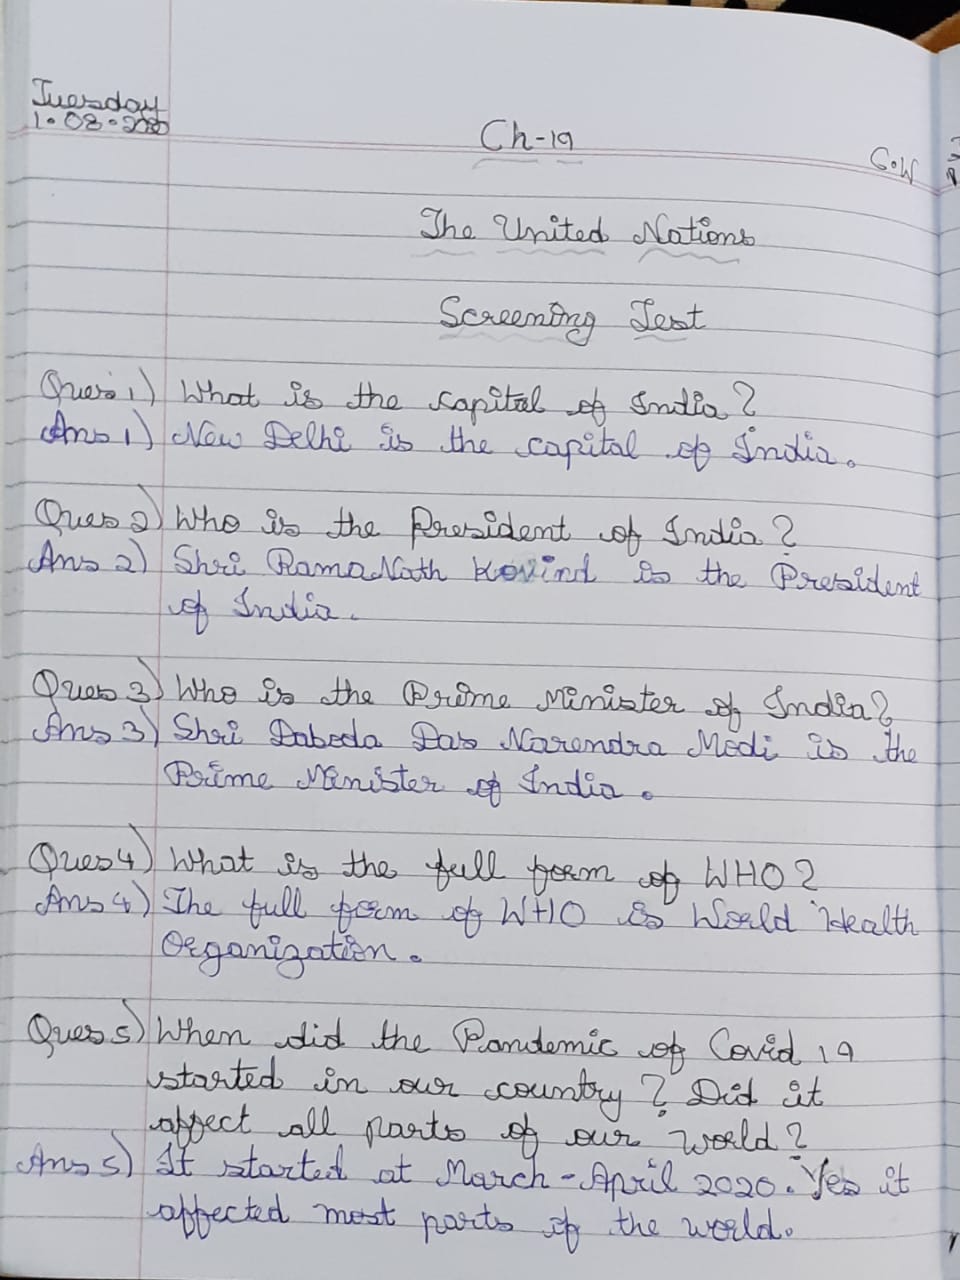 Tuesday
1.08.2020
Ch-19
C.W
The United Nations
Screening Test
Ques 1) What is the capital of India?
Ans 1) New Delhi is the capital of India.
Ques 2) Who is the President of India?
Ans 2) Shri RamaNath Kovind is the President
of India.
Ques 3) Who is the Prime Minister of India?
Ans 3) Shri Daboda Das Narendra Modi is the
Prime Minister of India.
Ques 4) What is the full form of WHO?
Ans 4) The full form of WHO is World Health
Organization.
Ques 5) When did the Pandemic of Covid 19
started in our country? Did it
affect all parts of our world?
Ans 5) It started at March-April 2020. Yes it
affected most parts of the world.